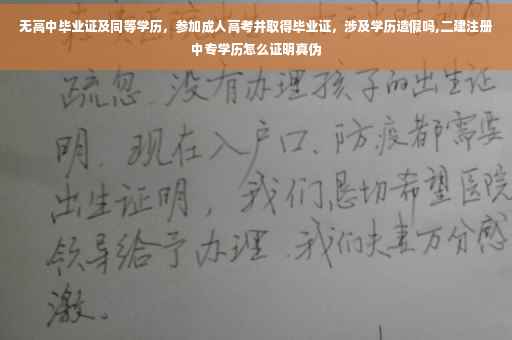 无高中毕业证及同等学历，参加成人高考并取得毕业证，涉及学历造假吗,二建注册
中专学历怎么证明真伪
疏忽.没有办理孩子的出生证
明.现在入户口、防疫都需要
出生证明，我们恳切希望医院
领导给予办理.我们夫妻万分感
激。